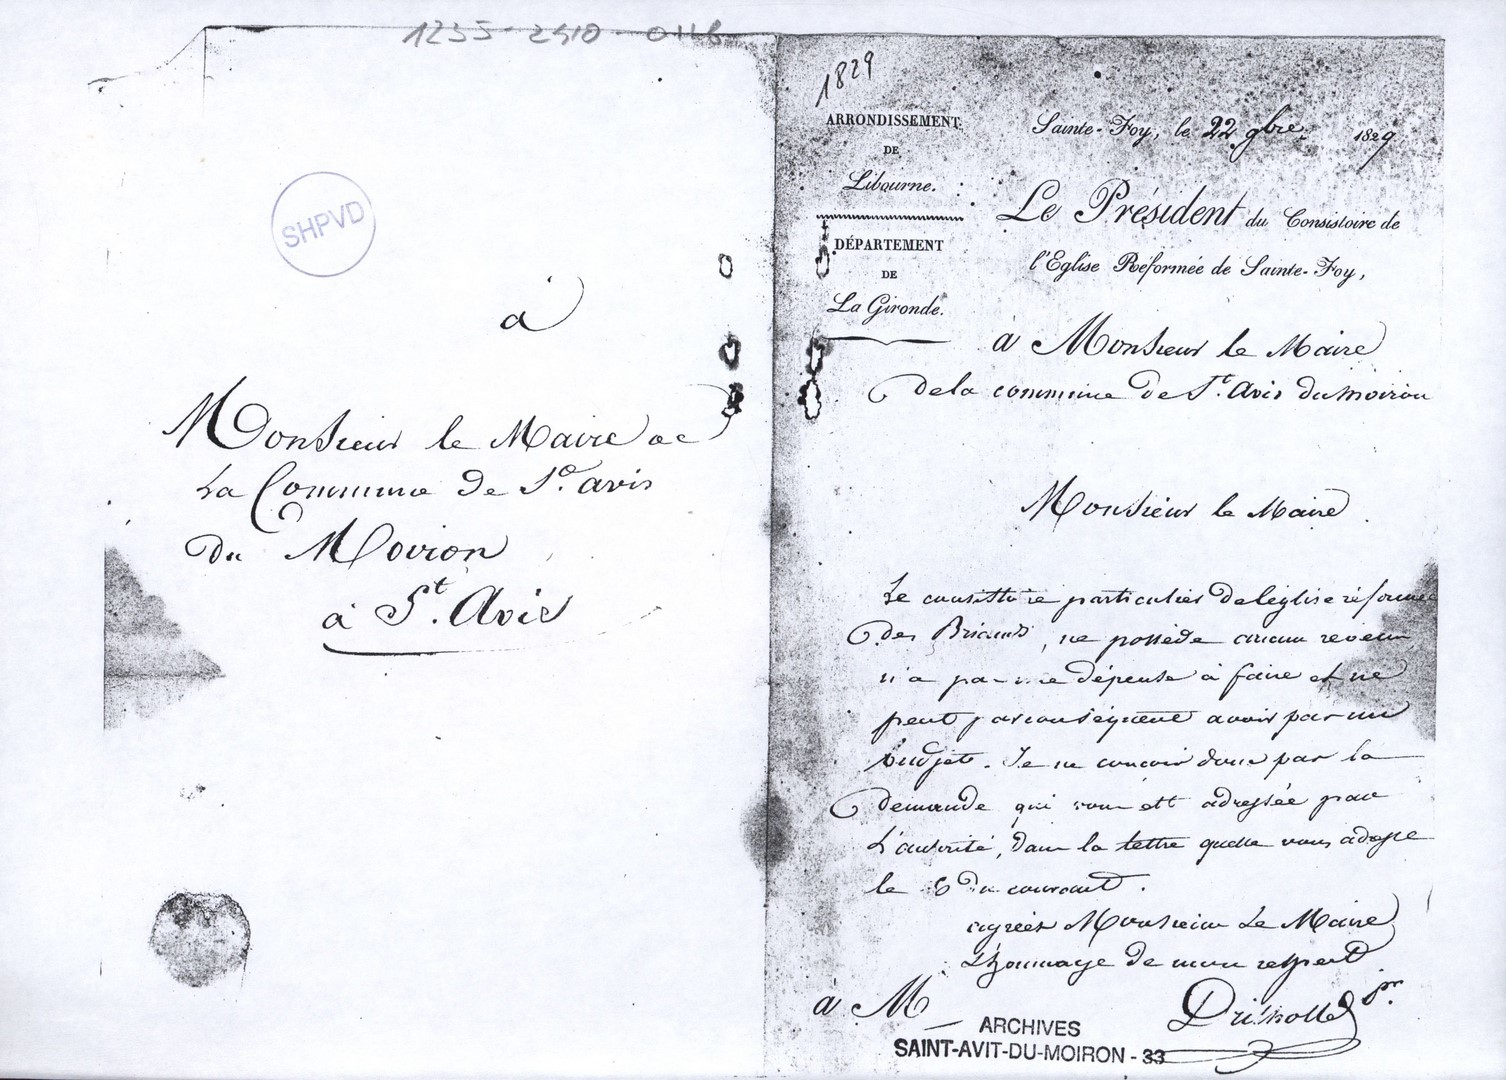 1255-2510-0116
SHPVD
à
Monsieur le Maire de
La Commune de St. avis
Du Moiron
à St. Avis
1829
ARRONDISSEMENT
DE
Libourne.
DÉPARTEMENT
DE
La Gironde.
Sainte-Foy, le 22 9bre 1829
Le Président du Consistoire de
l'Eglise Reformée de Sainte-Foy,
à Monsieur le Maire
de la commune de St. Avis du moiron
Monsieur le Maire
Le consistoire particulier de l'église réformée
des Briands, ne possède aucun revenu
n'a pas une dépense à faire et ne
peut par conséquent avoir pas un
budjet. Je ne concois donc pas la
demande qui vous est adressée par
L'autorité, dans la lettre quelle vous adresse
le 6 du courant.
agréez Monsieur Le Maire
L'hommage de mon respect
à M
ARCHIVES
SAINT-AVIT-DU-MOIRON - 33